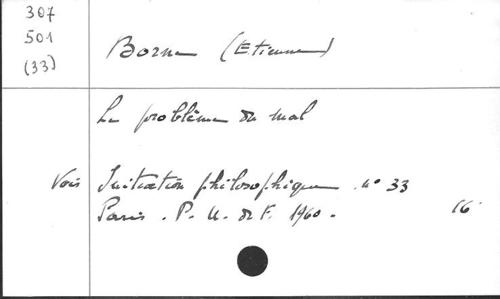 307
501
(33)
Borne (Etienne)
Le problème du mal
Voir Initiation philosophique. n° 33
Paris. P. U. de F. 1960. 16